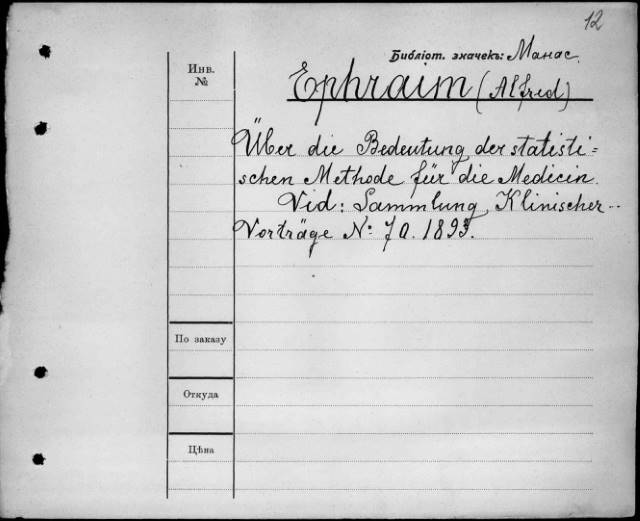 12
Библіот. значекъ: Манас.
Инв.
№
Ephraim (Alfred)
Über die Bedeutung der statisti=
schen Methode für die Medicin.
Vid: Sammlung Klinischer
Vorträge №: 70. 1893.
По заказу
Откуда
Цѣна